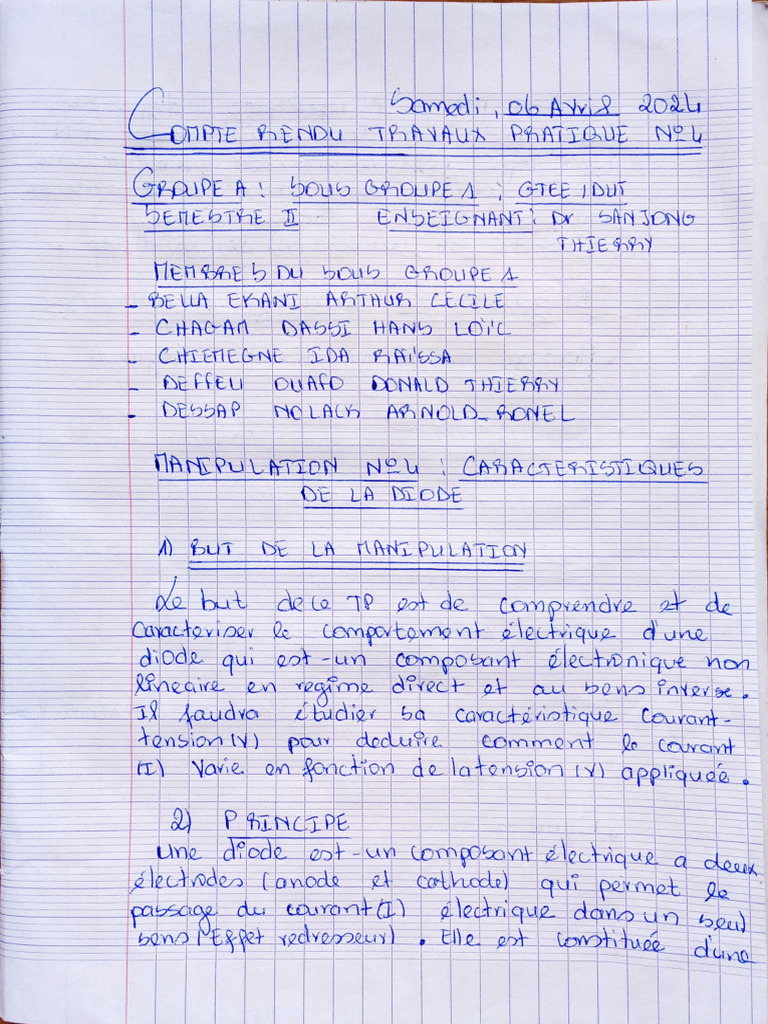 Samedi, 06 Avril 2024
COMPTE RENDU TRAVAUX PRATIQUE N°4
GROUPE A : SOUS GROUPE 1 ; GTEE IDUT
SEMESTRE II ENSEIGNANT: Dr SANJONG
THIERRY
MEMBRES DU SOUS GROUPE 1
- BELLA EKANI ARTHUR CECILE
- CHAGAM DASSI HANS LOÏC
- CHIEMEGNE IDA RAÏSSA
- DEFFEU OUAFO DONALD THIERRY
- DESSAP NOLACK ARNOLD_RONEL
MANIPULATION N°4 : CARACTERISTIQUES
DE LA DIODE
1) BUT DE LA MANIPULATION
Le but de ce TP est de comprendre et de
Caracteriser le comportement électrique d'une
diode qui est-un composant électronique non
lineaire en regime direct et au sens inverse.
Il faudra étudier sa caractéristique Courant-
tension(V) pour deduire comment le courant
(I) Varie en fonction de la tension (V) appliquée.
2) PRINCIPE
Une diode est-un composant électrique a deux
électrodes (anode et cathode) qui permet le
passage du courant(I) électrique dans un seul
sens (Effet redresseur). Elle est constituée d'une